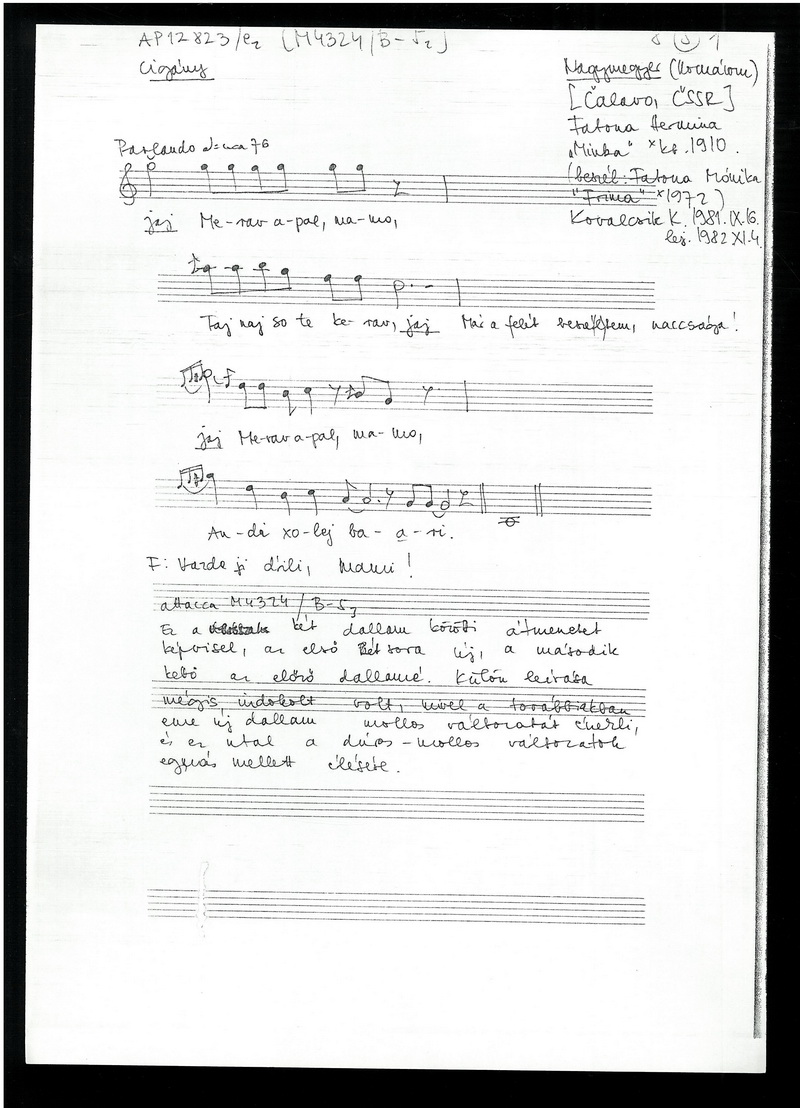 AP12823/e2 [M4324/B-52]
8 (5) 1
Cigány
Nagymegyer (Komárom)
[Čalovo, ČSSR]
Fatona Hermina
Parlando ♩=ca 76
"Minka" × kb. 1910.
(beszél: Fatona Mónika
"Frima" × 1972)
jaj Me-rav a-pal, ma-mo,
Kovalcsik K. 1981.IX.16.
lej. 1982 XI.4.
Taj naj so te ke-rav, jaj Már a felét beszéltem, naccsága!
jaj Me-rav a-pal, ma-mo,
An-dă xo-lej ba-a-ri.
F: Varde ji d'ili, Mami!
attacca M4324/B-53
Ez a két dallam közötti átmenetet
képvisel, az első két sora új, a második
kettő az előző dallamé. Külön leírása
mégis indokolt volt, mivel a továbbiakban
eme új dallam mollos változatát énekli,
és ez utal a dúros-mollos változatok
egymás mellett élésére.